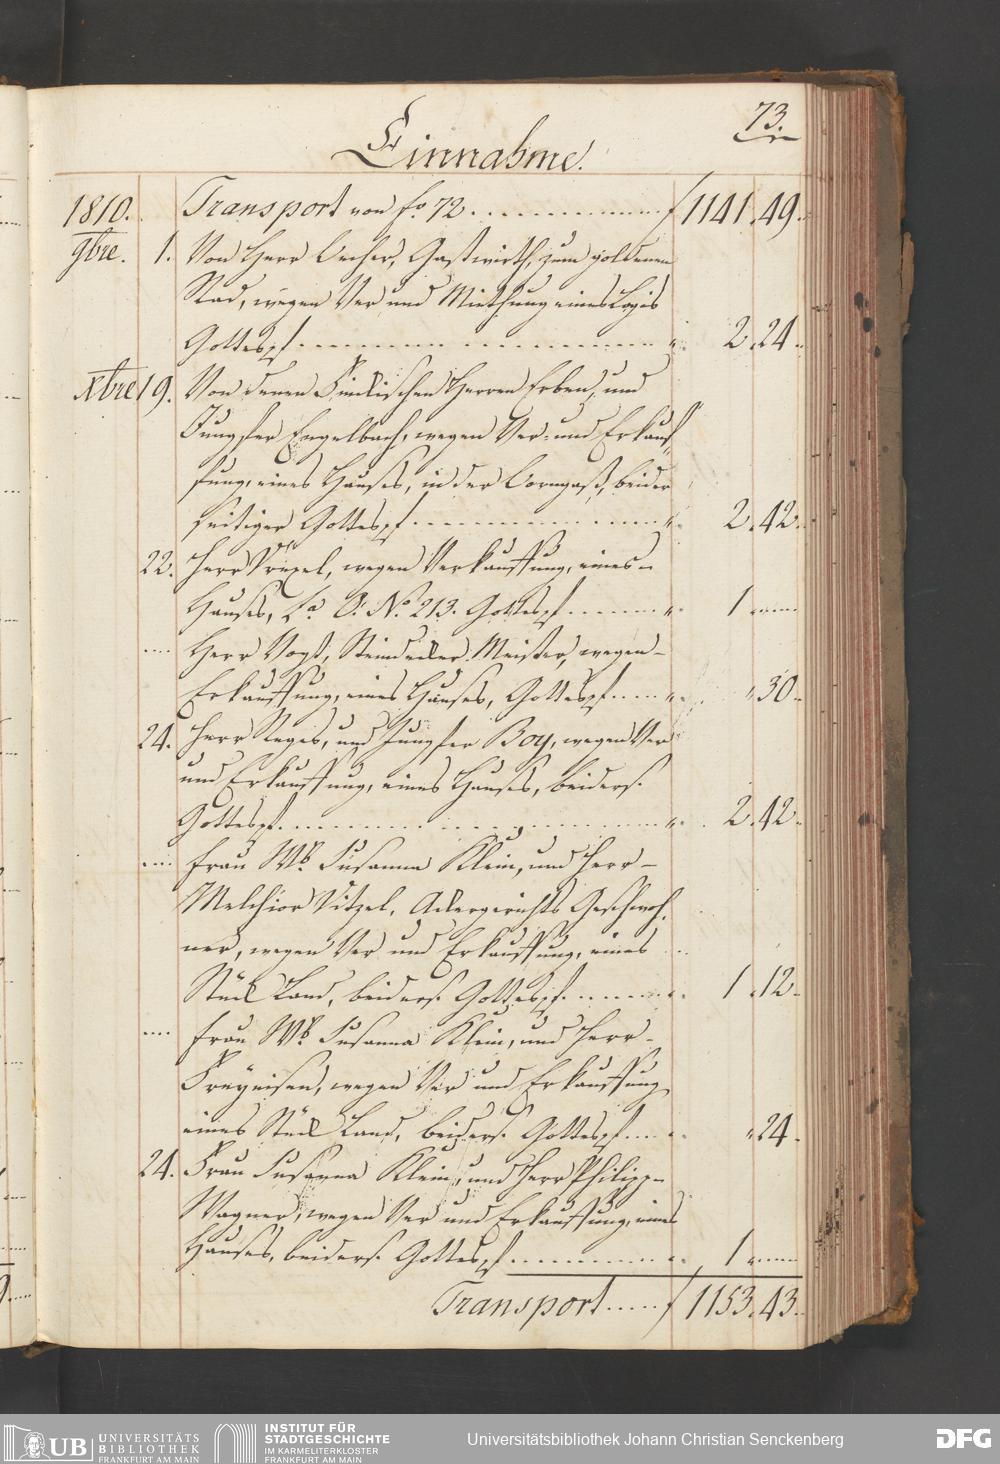 73.
Einnahme.
1810. Transport von fo. 72 . . . . . f 1141. 49.
9bre. 1. Von Herr Gastwirth, zum goldenen
Rad, wegen Ver und Miethung eines Logis
Gottespf. . . . . " 2. 24.
Xbre 19. Von denen Herren Erben, und
Jungfer Engelbach, wegen Ver- und Erkauf-
fung, eines Hauses, in der Borngaß, beider
seitiger Gottespf. . . . . " 2. 42.
22. Herr wegen Verkauffung, eines
Hauses, La. O. No. 213. Gottespf. . . . . " 1 "
. . . . Herr Vogt, Steindecker Meister, wegen
Erkauffung, eines Hauses, Gottespf. . . . . " " 30.
24. Herr und Jungfer Boy, wegen Ver
und Erkauffung, eines Hauses, beiders.
Gottespf. . . . . " 2. 42.
. . . . Frau Wb. Susanna Klein, und Herr
Melchior Ackergerichts Geschwor-
ner, wegen Ver und Erkauffung, eines
Stück Land, beiders. Gottespf. . . . . " 1. 12.
. . . . Frau Wb. Susanna Klein, und Herr
Freyeisen, wegen Ver und Erkauffung
eines Stück Land, beiders. Gottespf. . . . . " " 24.
24. Frau Susanna Klein, und Herr Philipp
Wagner, wegen Ver und Erkauffung, eines
Hauses, beiders. Gottespf. . . . . " 1 "
Transport . . . . . f 1153. 43.
UB UNIVERSITÄTS
BIBLIOTHEK
FRANKFURT AM MAIN
INSTITUT FÜR
STADTGESCHICHTE
IM KARMELITERKLOSTER
FRANKFURT AM MAIN
Universitätsbibliothek Johann Christian Senckenberg
DFG